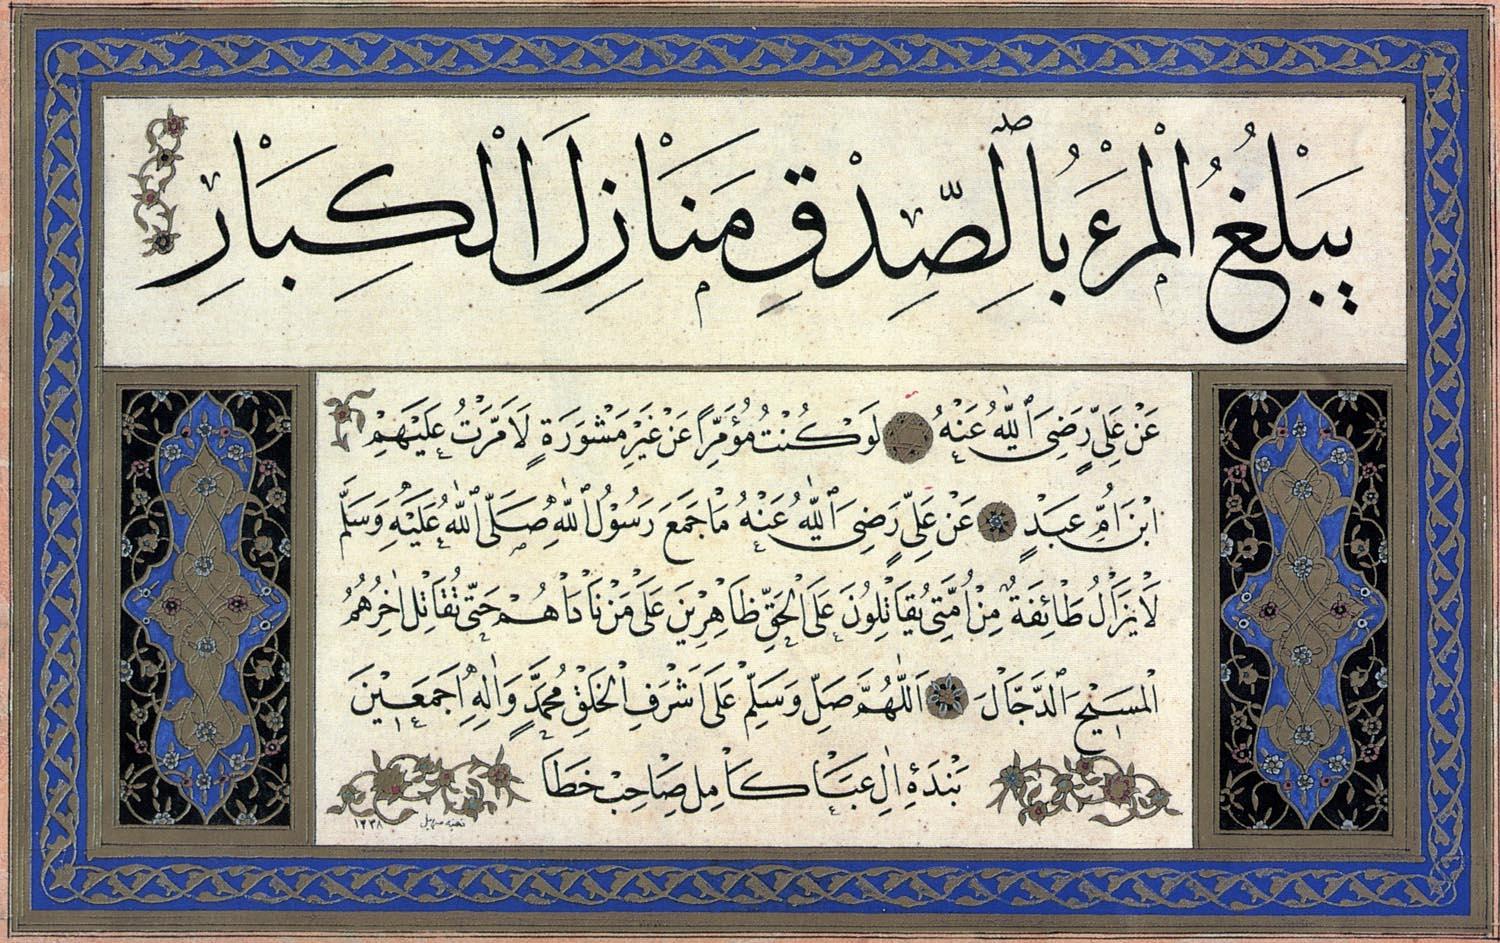 يَبْلُغُ الْمَرْءُ بِالصِّدْقِ مَنَازِلَ الْكِبَارِ
عَنْ عَلِيٍّ رَضِيَ اللّٰهُ عَنْهُ لَوْ كُنْتُ مُؤَمِّرًا عَنْ غَيْرِ مَشْوَرَةٍ لَأَمَّرْتُ عَلَيْهِمْ
ابْنَ أُمِّ عَبْدٍ عَنْ عَلِيٍّ رَضِيَ اللّٰهُ عَنْهُ مَا جَمَعَ رَسُولُ اللّٰهِ صَلَّى اللّٰهُ عَلَيْهِ وَسَلَّمَ
لَا يَزَالُ طَائِفَةٌ مِنْ أُمَّتِي يُقَاتِلُونَ عَلَى الْحَقِّ ظَاهِرِينَ عَلَى مَنْ نَادَاهُمْ حَتَّى تُقَاتِلَ اٰخِرُهُمُ
الْمَسِيحَ الدَّجَّالَ اَللّٰهُمَّ صَلِّ وَسَلِّمْ عَلَى اَشْرَفِ الْخَلْقِ مُحَمَّدٍ وَاٰلِهِ اَجْمَعِينَ
بَنْدَهِٔ اٰلِ عَبَا كَامِل صَاحِبْ خَطَا
١٣٣٨